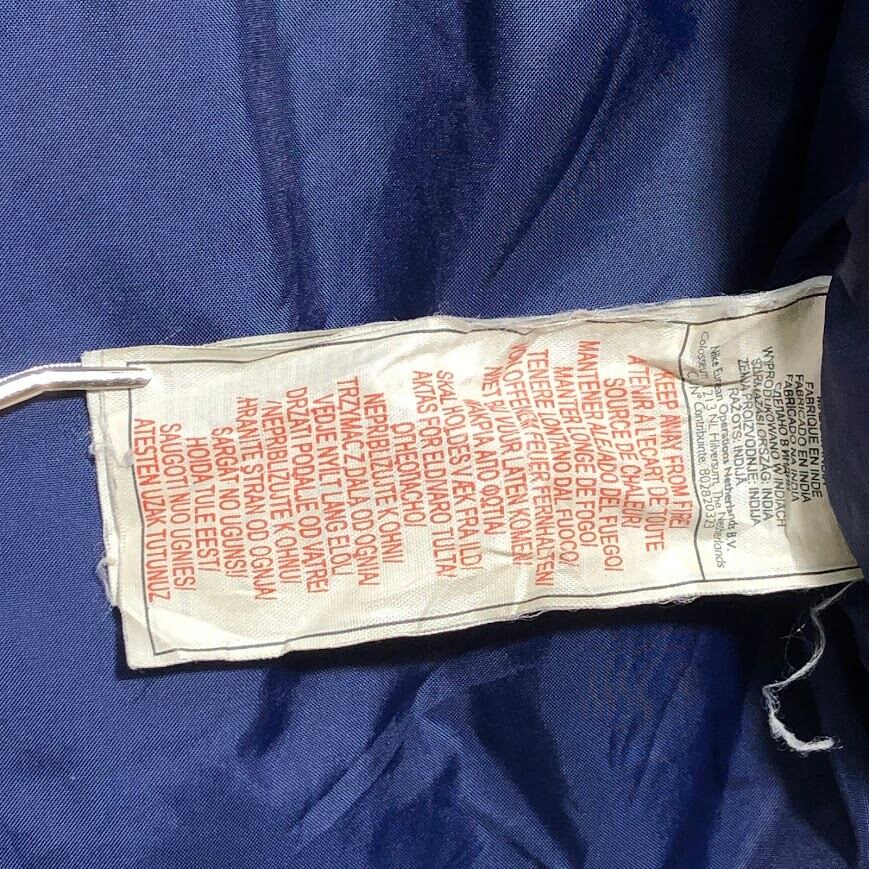 FABRIQUE EN INDE
FABRICADO EN INDIA
FABRICADO NA INDIA
СДЕЛАНО
WYPRODUKOWANO W INDIACH
SZÁRMAZÁSI ORSZÁG: INDIA
ZEMJA PROIZVODNJE: INDIJA
RAŽOTS: INDIJA
Nike European Operations Netherlands B.V.
Colosseum 1213 NL Hilversum The Netherlands
KEEP AWAY FROM FIRE
A TENIR A L'ECART DE TOUTE
SOURCE DE CHALEUR/
MANTENER ALEJADO DEL FUEGO/
MANTER LONGE DE FOGO/
TENERE LONTANO DAL FUOCO/
VON OFFENEM FEUER FERNHALTEN/
NIET BIJ VUUR LATEN KOMEN/
ΜΑΚΡΙΑ ΑΠΟ ΦΩΤΙΑ/
SKAL HOLDES VÆK FRA ILD/
AKTAS FÖR ELDIVARO TULTA/
ОГНЕОПАСНО/
NEPRIBLIZUTE K OHNI/
TRZYMAĆ Z DALA OD OGNIA/
VEDJE NYLT LANG ELOL/
DRZATI PODALJE OD VATRE/
/NEPRIBLIZUJTE K OHNU/
HRANITE STRAN OD OGNJA/
SARGAT NO UGUNS//
HOIDA TULE EEST/
SAUGOTI NUO UGNIES/
ATESTEN UZAK TUTUNUZ